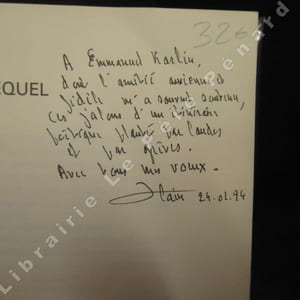 320
EQUEL
A Emmanuel Karlin,
dont l'amitié ancienne et
fidèle m'a souvent soutenu,
ces jalons d'un itinéraire
poétique planté par landes
et par grèves.
Avec tous mes voeux.
Alain 24.01.94
Librairie Le Père Pénard